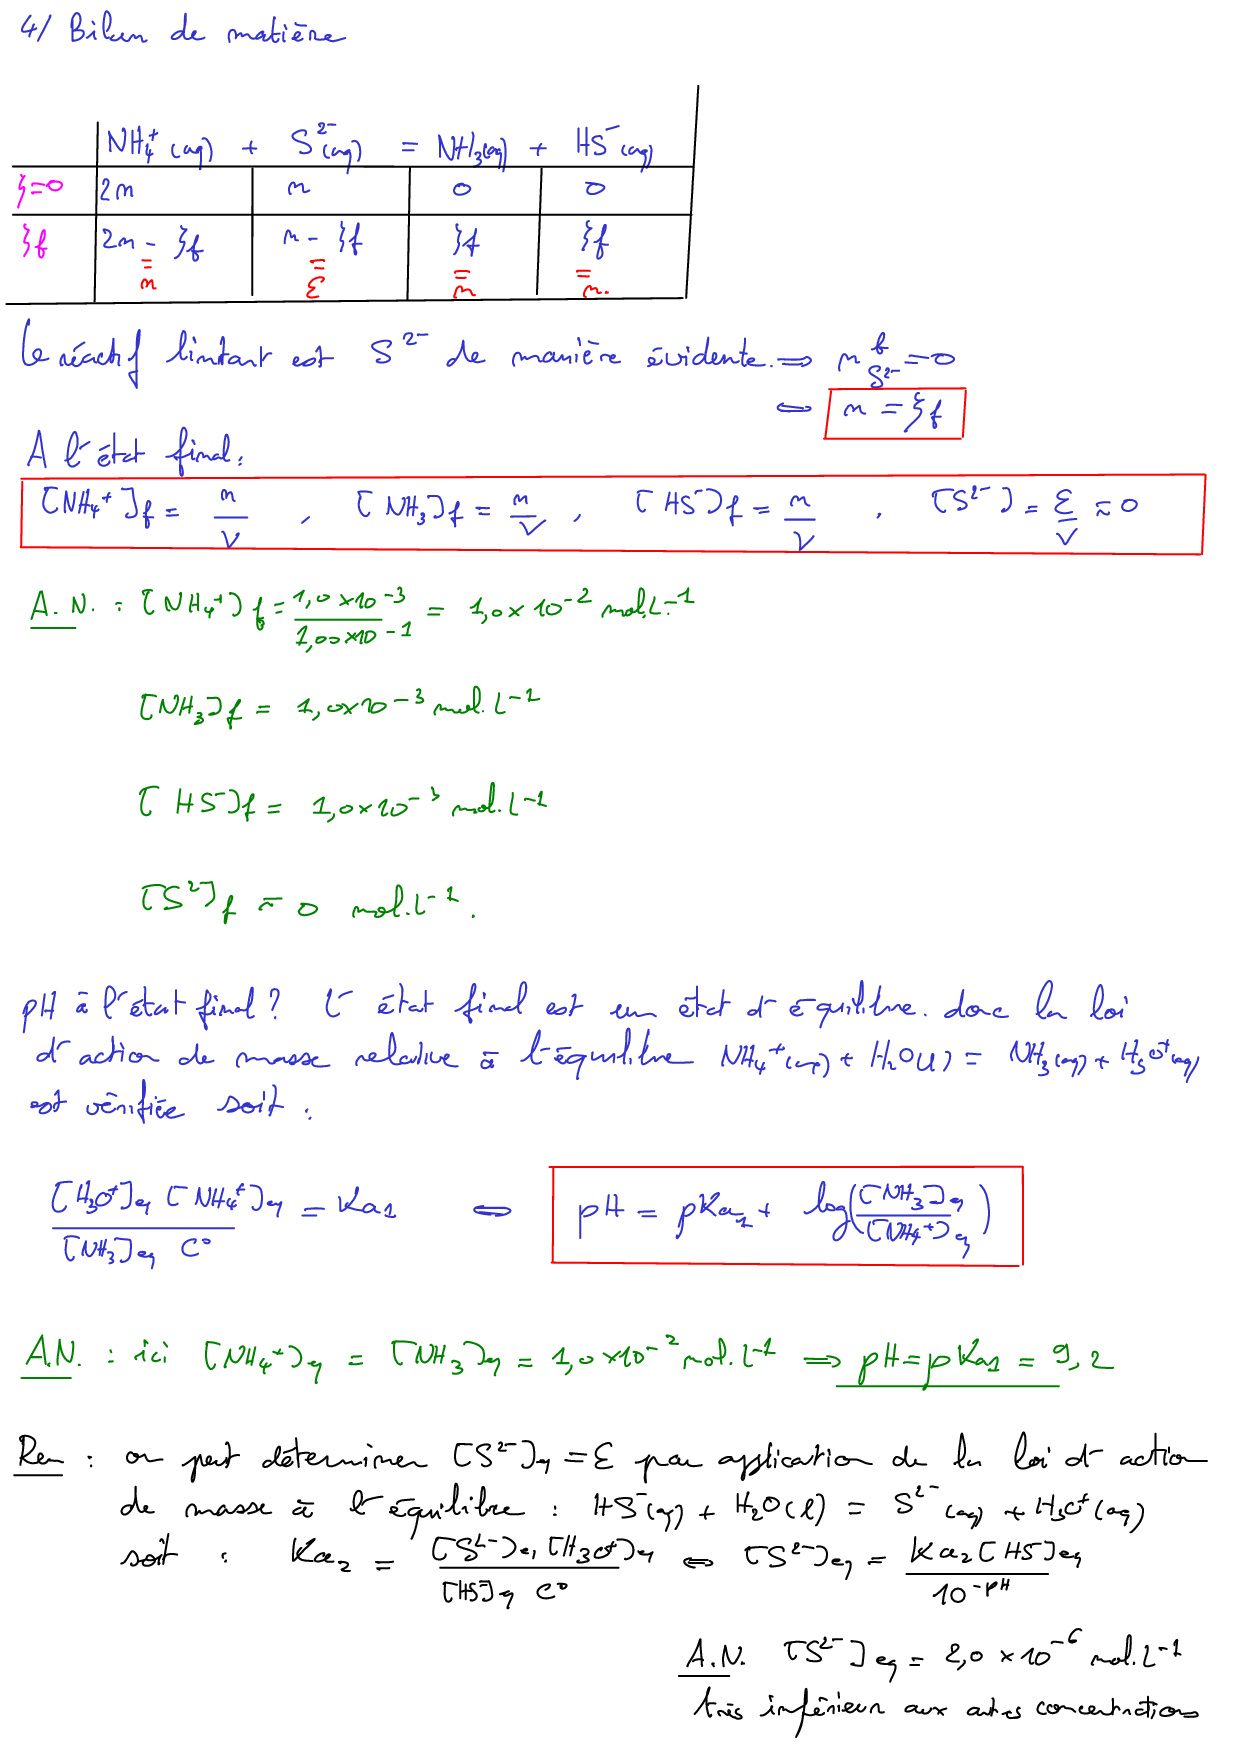 4/ Bilan de matière
NH₄⁺(aq) + S²⁻(aq) = NH₃(aq) + HS⁻(aq)
ξ=0 2n n 0 0
ξf 2n - ξf n - ξf ξf ξf
= n = ε = n = n.
Le réactif limitant est S²⁻ de manière évidente. ⇒ n^f_S²⁻ = 0
⇔ n = ξf
A l'état final:
[NH₄⁺]f = n/V , [NH₃]f = n/V , [HS⁻]f = n/V , [S²⁻] = ε/V ≈ 0
A.N. : [NH₄⁺]f = 1,0×10⁻³/1,00×10⁻¹ = 1,0×10⁻² mol.L⁻¹
[NH₃]f = 1,0×10⁻³ mol.L⁻¹
[HS⁻]f = 1,0×10⁻³ mol.L⁻¹
[S²⁻]f ≈ 0 mol.L⁻¹.
pH à l'état final? L'état final est un état d'équilibre. donc la loi
d'action de masse relative à l'équilibre NH₄⁺(aq) + H₂O(l) = NH₃(aq) + H₃O⁺(aq)
est vérifiée soit :
[H₃O⁺]eq [NH₄⁺]eq / [NH₃]eq C° = Ka₁ ⇔ pH = pKa₁ + log([NH₃]eq/[NH₄⁺]eq)
A.N. : ici [NH₄⁺]eq = [NH₃]eq = 1,0×10⁻² mol.L⁻¹ ⇒ pH = pKa₁ = 9,2
Rem : on peut déterminer [S²⁻]eq = ε par application de la loi d'action
de masse à l'équilibre : HS⁻(aq) + H₂O(l) = S²⁻(aq) + H₃O⁺(aq)
soit : Ka₂ = [S²⁻]eq [H₃O⁺]eq / [HS⁻]eq C° ⇔ [S²⁻]eq = Ka₂ [HS⁻]eq / 10^-pH
A.N. [S²⁻]eq = 2,0 × 10⁻⁶ mol.L⁻¹
très inférieur aux autres concentrations